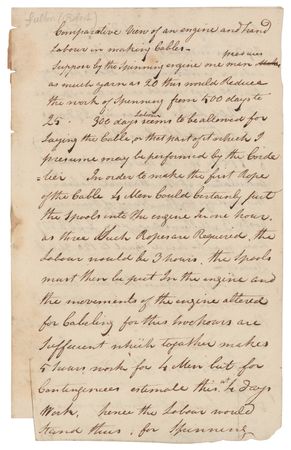 Fulton (Robert)
Comparative View of an engine and hand
Labour in making Cables.
produces
Suppose by the Spinning engine one man
as much yarn as 20 this would Reduce
the work of Spinning from 500 days to
Labour
25 300 days seems to be allowed for
Laying the Cable or that part of it which I
presume may be performed by the Corde
-lier In order to make the first Rope
of the Cable 4 Men Could Certainly put
the Spools into the engine in one hour.
as three Such Ropes are Required, the
Labour would be 3 hours. the Spools
must then be put In the engine and
the movements of the engine altered
for Cabeling for this two hours are
Sufficient which together makes
5 hours work for 4 Men but for
Contingencies estimate this at 4 days
Work, hence the Labour would
stand thus, for Spinning